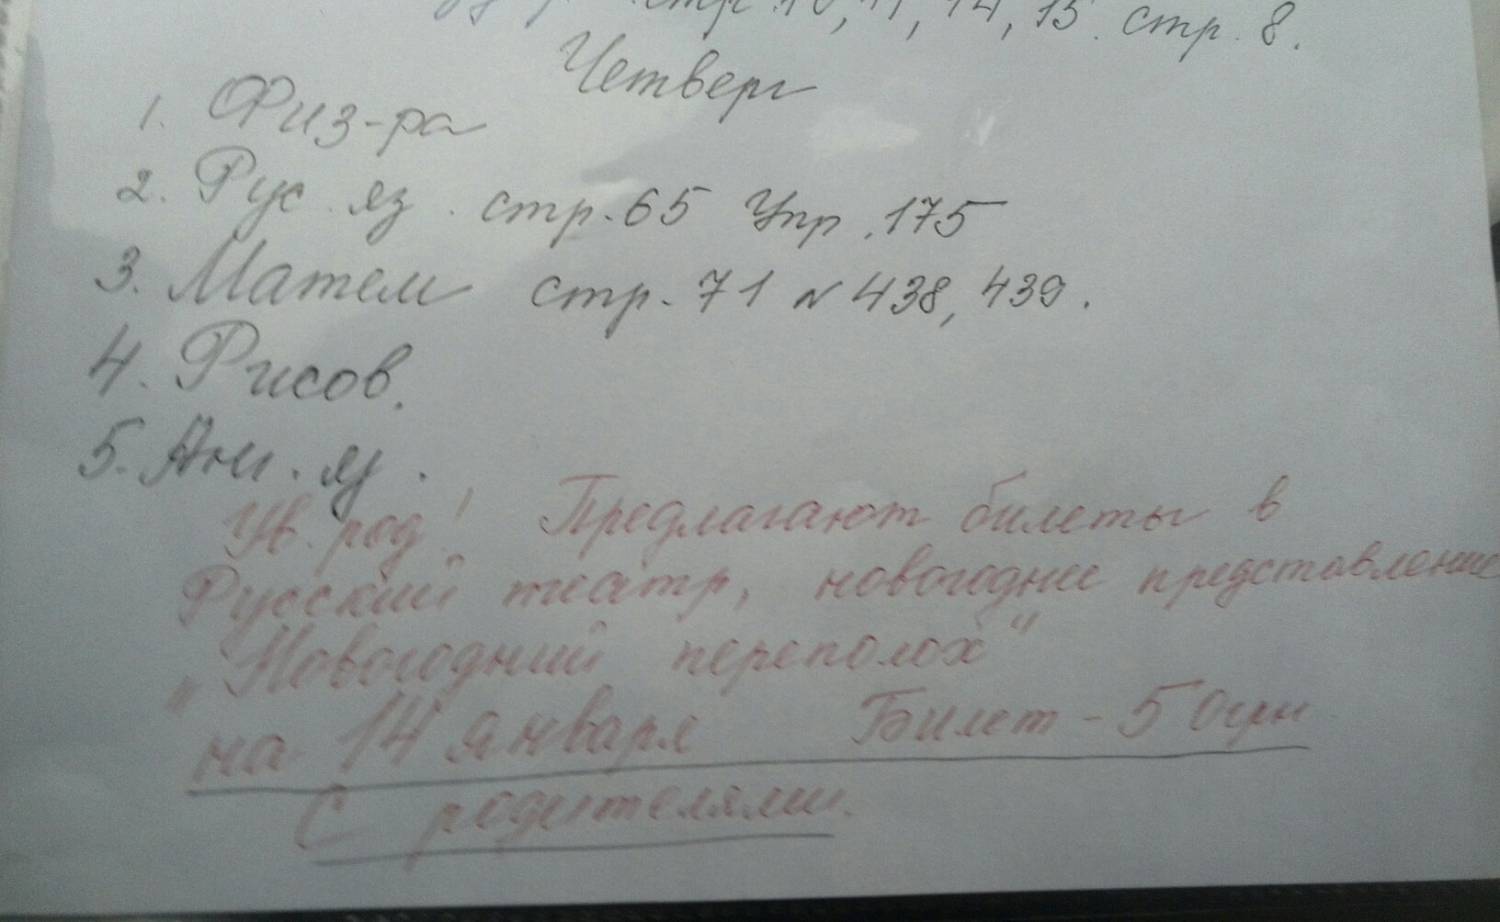 стр. 10, 11, 14, 15. стр. 8.
Четверг
1. Физ-ра
2. Рус. яз. стр. 65 Упр. 175
3. Матем стр. 71 № 438, 439.
4. Рисов.
5. Анг. яз.
Ув. род! Предлагают билеты в
Русский театр, новогоднее представление
„Новогодний переполох"
на 14 января Билет - 50 грн
С родителями.